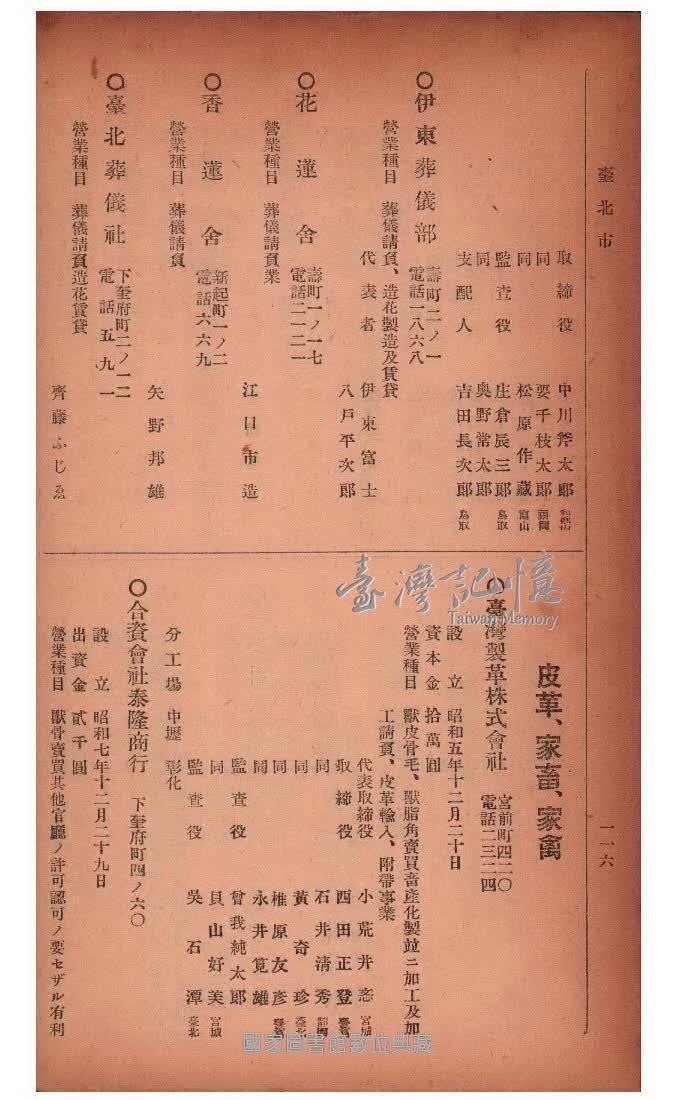 臺北市
一一六
取締役 中川斧太郎 和歌山
同 要千枝太郎 福岡
同 松原作藏 富山
監査役 庄倉辰三郎 鳥取
同 奥野常太郎
支配人 吉田長次郎 鳥取
〇伊東葬儀部 壽町二ノ一 電話一八六八
營業種目 葬儀請負、造花製造及賃貸
代表者 伊東富士
八戸平次郎
〇花蓮舍 壽町一ノ一七 電話二一二一
營業種目 葬儀請負業
江口市造
〇香蓮舍 新起町一ノ二 電話六六九
營業種目 葬儀請負
矢野邦雄
〇臺北葬儀社 下奎府町二ノ一二 電話五九一
營業種目 葬儀請負造花賃貸
齊藤ふじゑ
皮革、家畜、家禽
〇臺灣製革株式會社 宮前町四二〇 電話二三二四
設立 昭和五年十二月二十日
資本金 拾萬圓
營業種目 獸皮骨毛、獸脂角賣買畜産化製竝ニ加工及加
工請負、皮革輸入、附帶事業
代表取締役 小荒井 宮城
取締役 西田正登
同 石井清秀 靜岡
同 黃奇珍 臺北
同 椎原友彦
同 永井箟雄
監査役 曾我純太郎
同 貝山好美 宮城
監査役 吳石潭 臺北
分工場 中壢 彰化
〇合資會社泰隆商行 下奎府町四ノ六〇
設立 昭和七年十二月二十九日
出資金 貳千圓
營業種目 獸骨賣買其他官廳ノ許可認可ノ要セザル有利
臺灣記憶
Taiwan Memory
國家圖書館數位典藏